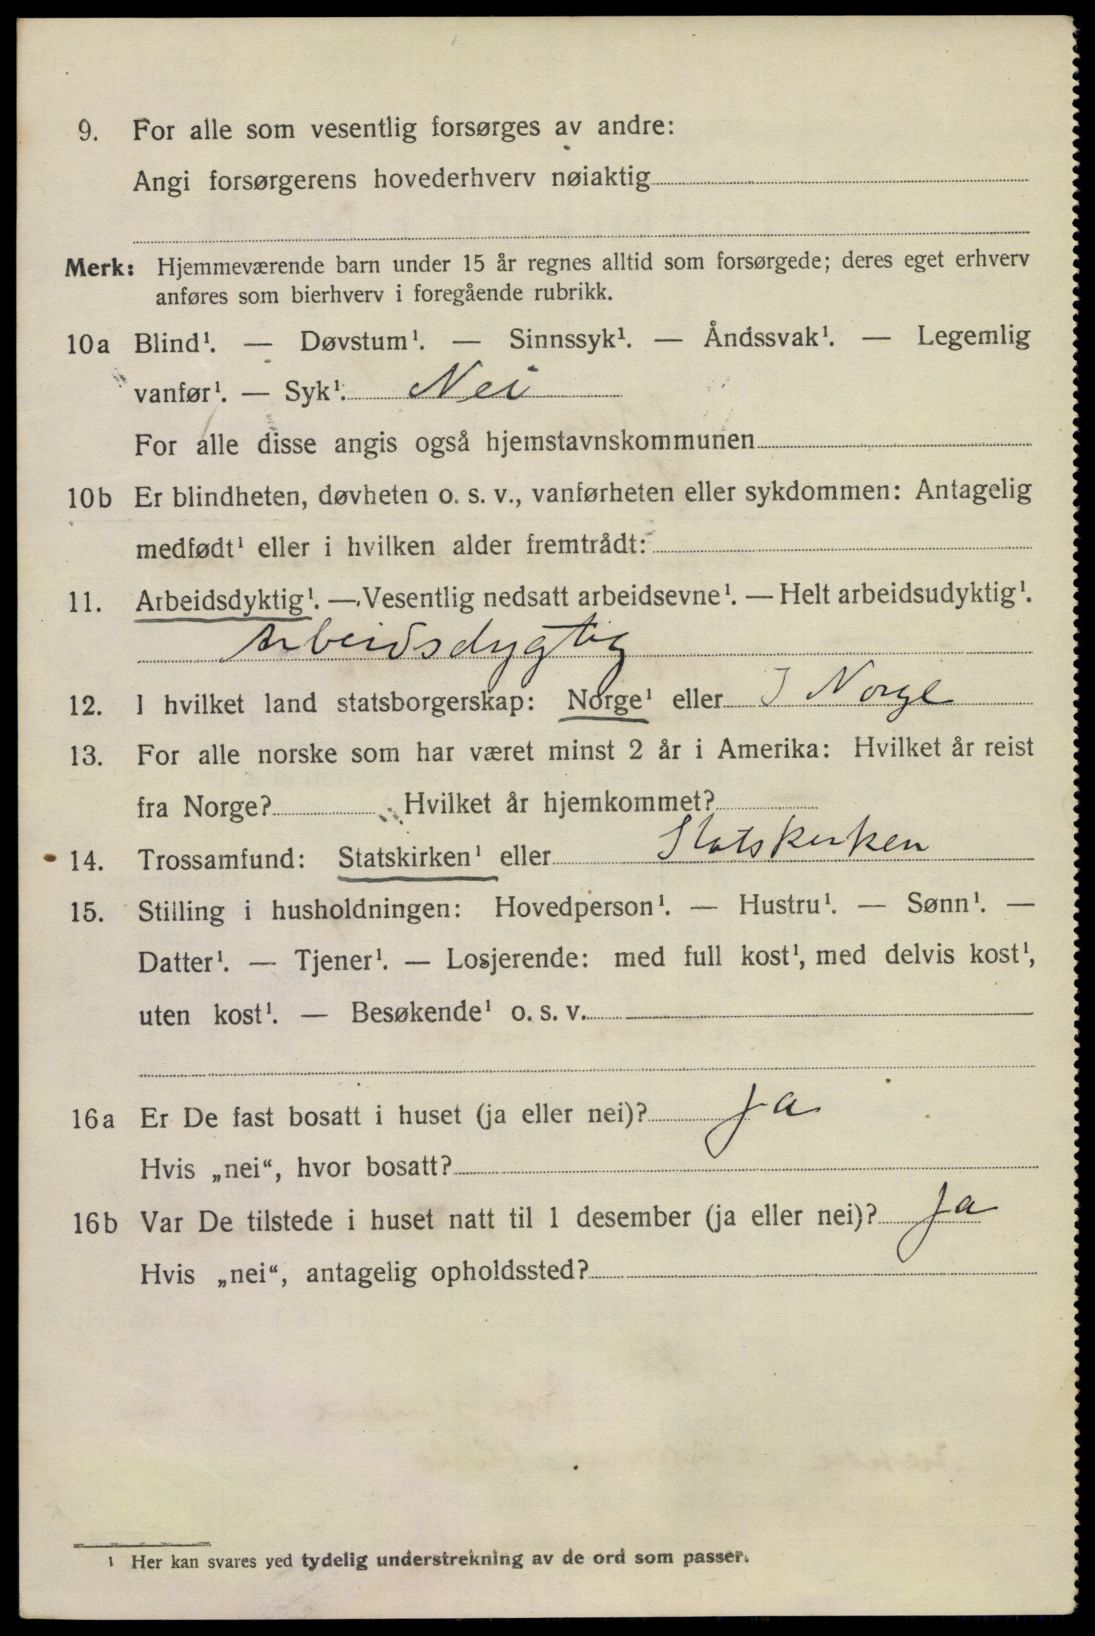 9. For alle som vesentlig forsørges av andre:
Angi forsørgerens hovederhverv nøiaktig
Merk: Hjemmeværende barn under 15 år regnes alltid som forsørgede; deres eget erhverv
anføres som bierhverv i foregående rubrikk.
10a Blind¹. — Døvstum¹. — Sinnssyk¹. — Åndssvak¹. — Legemlig
vanfør¹. — Syk¹. Nei
For alle disse angis også hjemstavnskommunen
10b Er blindheten, døvheten o. s. v., vanførheten eller sykdommen: Antagelig
medfødt¹ eller i hvilken alder fremtrådt:
11. Arbeidsdyktig¹. — Vesentlig nedsatt arbeidsevne¹. — Helt arbeidsudyktig¹.
Arbeidsdygtig
12. I hvilket land statsborgerskap: Norge¹ eller I Norge
13. For alle norske som har været minst 2 år i Amerika: Hvilket år reist
fra Norge? Hvilket år hjemkommet?
14. Trossamfund: Statskirken¹ eller Statskirken
15. Stilling i husholdningen: Hovedperson¹. — Hustru¹. — Sønn¹. —
Datter¹. — Tjener¹. — Losjerende: med full kost¹, med delvis kost¹,
uten kost¹. — Besøkende¹ o. s. v.
16a Er De fast bosatt i huset (ja eller nei)? Ja
Hvis „nei“, hvor bosatt?
16b Var De tilstede i huset natt til 1 desember (ja eller nei)? Ja
Hvis „nei“, antagelig opholdssted?
¹ Her kan svares ved tydelig understrekning av de ord som passer.